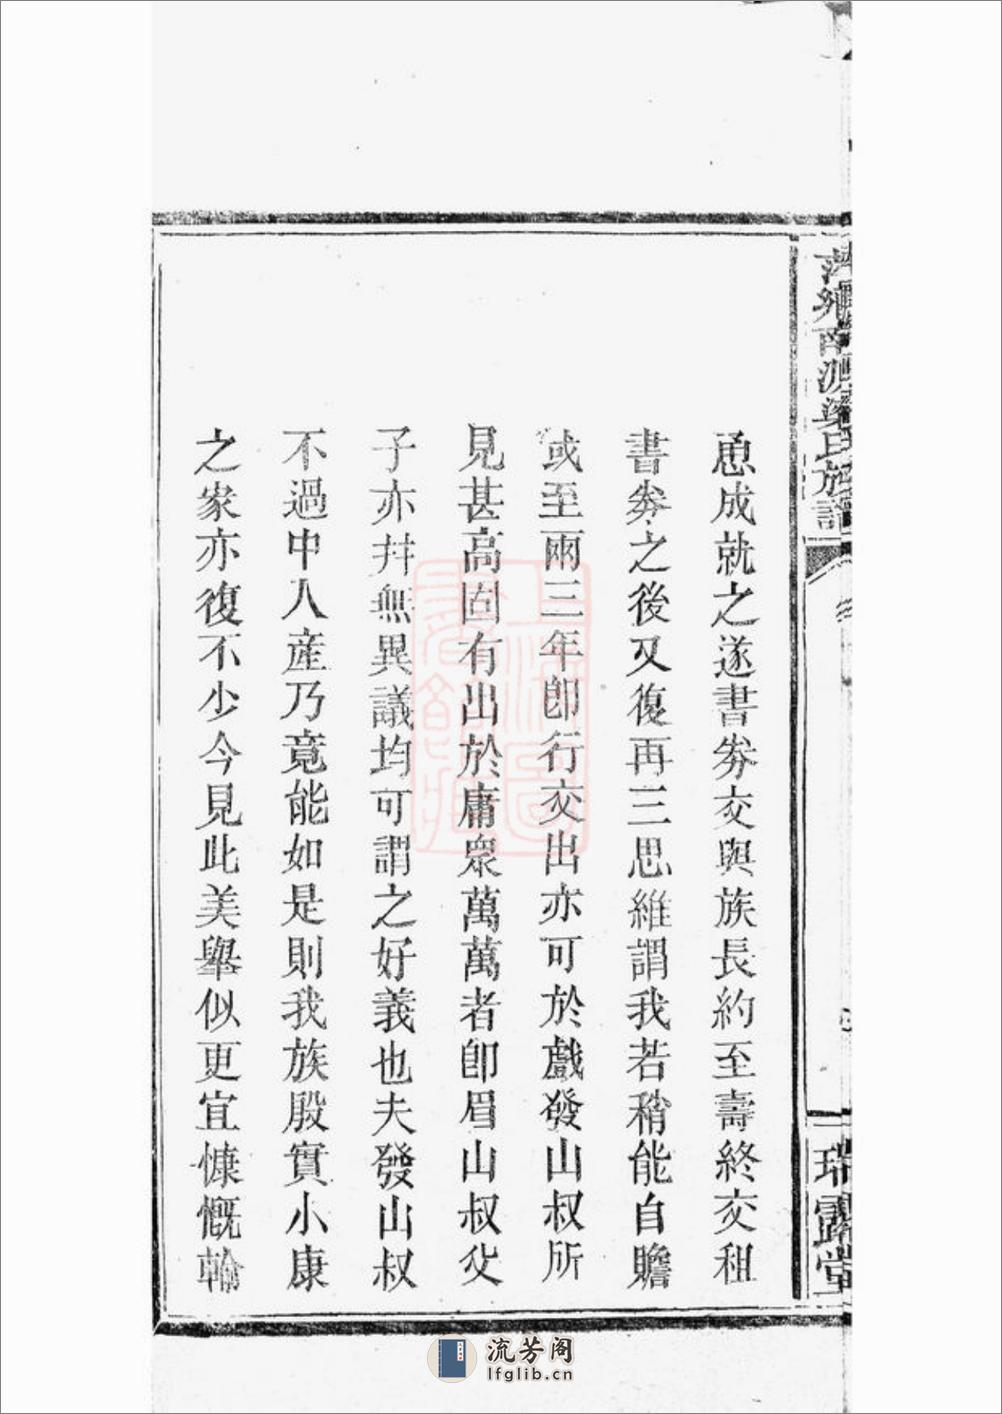 恿成就之遂書劵交與族長約至壽終交租
書劵之後又復再三思維謂我若稍能自贍
或至兩三年卽行交出亦可於戲發山叔所
見甚高固有出於庸衆萬萬者卽眉山叔父
子亦幷無異議均可謂之好義也夫發山叔
不過中人產乃竟能如是則我族殷實小康
之家亦復不少今見此美舉似更宜慷慨輸
萍鄉南源梁氏族譜
瑞露堂
流芳阁
lfglib.cn